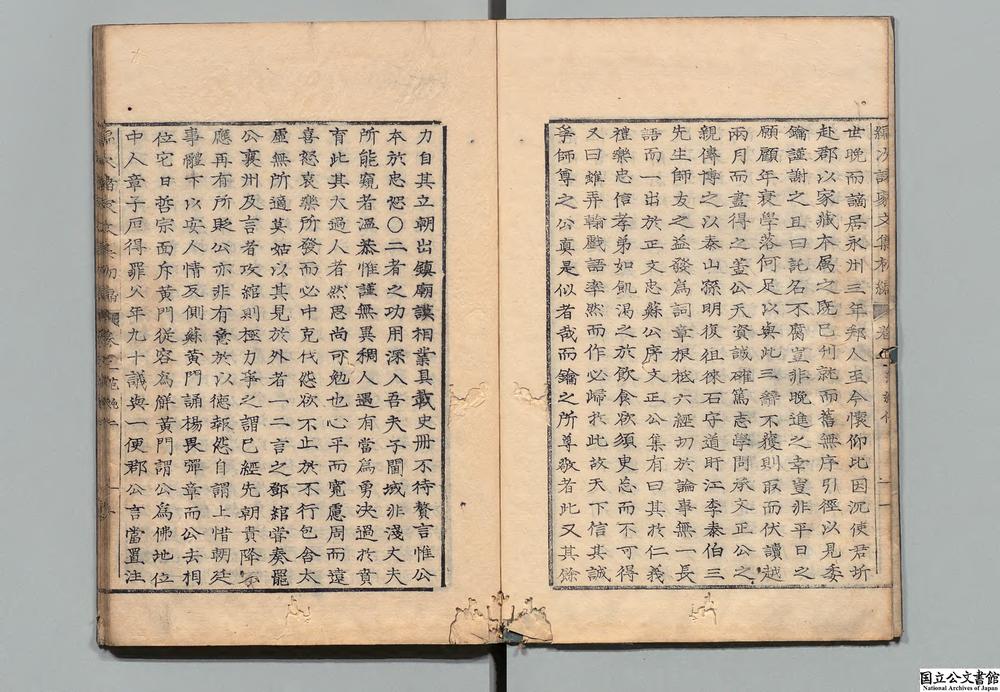 世晩而謫居永州三年邦人至今懷仰比因沉使君圻
赴郡以家藏本属之既已刊就而舊無序引徑以見委
鑰謹謝之且曰託名不腐豈非晩進之幸豈非平日之
願顧年衰學落何足以與此三辭不獲則取而伏讀越
兩月而盡得之蓋公天資誠確篤志學問承文正公之
親傳博之以泰山孫明復徂徠石守道盱江李泰伯三
先生師友之益發為詞章根柢六經切於論事無一長
語而一出於正文忠蘇公序文正公集有曰其於仁義
禮樂忠信孝弟如飢渇之於飲食欲須臾忘而不可得
又曰雖弄翰戱語率然而作必歸於此故天下信其誠
爭師尊之公真是似者㢤而鑰之所尊敬者此又其餘
力自其立朝出鎮廟謨相業具載史册不待贅言惟公
本於忠恕〇二者之功用深入吾夫子閫域非淺丈夫
所能窺者溫恭惟謹無異稠人遇有當為勇决過於賁
育此其大過人者然思尚可勉也心平而寬慮周而遠
喜怒哀樂所發而必中克伐怨欲不止於不行包含太
虛無所適莫姑以其見於外者一二言之鄧綰嘗奏罷
公襄州及言者攻綰則極力爭之謂已經先朝責降
應再有所貶公亦非有意於以德報怨自謂上惜朝廷
事體下以安人情反側蘇黄門誦楊畏彈章而公去相
位它日哲宗面斥黄門從容為解黄門謂公為佛地位
中人章子厚得罪父年九十議與一便郡公言當置注
国立公文書館
National Archives of Japan